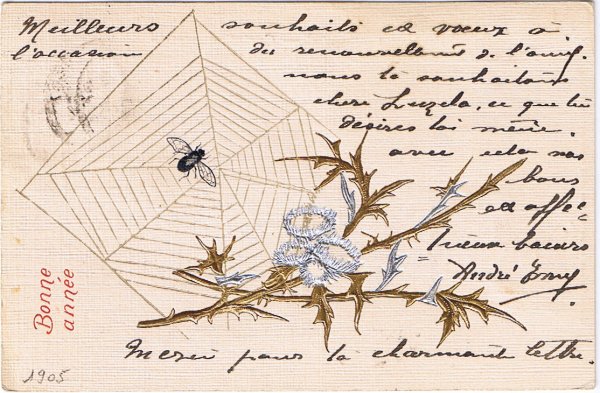 Meilleurs souhaits et vœux à
l'occasion du renouvellemt de l'année.
nous te souhaitons
chère Luzela, ce que tu
désires toi même.
avec cela nos
bons
et affec-
tueux baisers
André
Merci pour la charmante lettre.
Bonne
année
1905